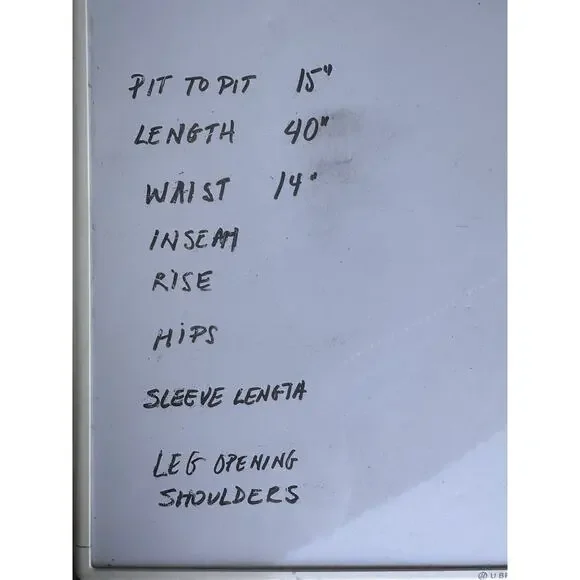 PIT TO PIT 15"
LENGTH 40"
WAIST 14"
INSEAM
RISE
HIPS
SLEEVE LENGTH
LEG OPENING
SHOULDERS